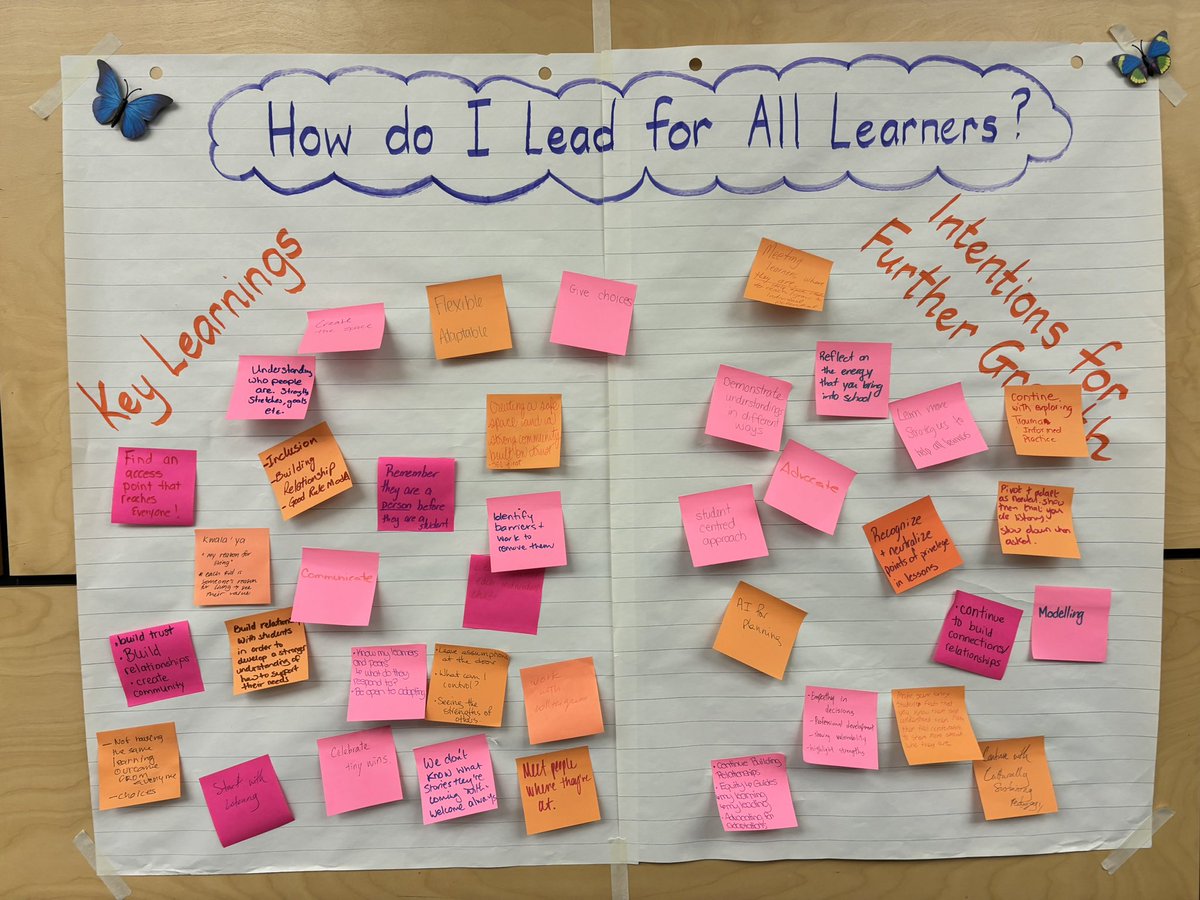 How do I Lead for All Learners?
Key Learnings
Create
the space
Flexible
Adaptable
Give choices
Understanding
who people
are. Strengths
Stretches, goals
etc.
Creating a safe
space and a
strong community
built on trust
Find an
access
point that
reaches
Everyone!
-Inclusion
-Building
Relationship
-Good Role Model
Remember
they are a
person before
they are a student
Identify
barriers +
work to
remove them
Kwala'ya
"my reason for
living"
each kid is
someone's reason
for living + see
their value
Communicate
•build trust
•Build
relationships
•create
community
Build relations
with students
in order to
develop a stronger
understanding of
how to support
their needs
•Know my learners
and peers
↳what do they
respond to?
•Be open to adapting
•Leave assumptions
at the door
•What can I
control?
•Seeing the
strengths of
others
Work with
- Not having
the same
learning
outcome
from
everyone
- choices
Start with
Celebrate
tiny wins
We don't
Know what
Stories they're
coming with.
Welcome always
Meet people
where they're
at.
Intentions for
Further Gr th
Meeting
learners where
they
Reflect on
the energy
that you bring
into school
Demonstrate
understandings
in different
ways
Learn more
strategies to
help all learners
Contine
with exploring
Trauma
Informed
Practice
Advocate
student
centred
approach
Recognize
+ neutralize
points of priveleye
in lessons
Pivot + adapt
as needed. show
them that you
are listening!
Slow down when
asked.
AI for
planning
•continue
to build
connections/
relationships
Modelling
•Empathy in
decisions
-Professional development
-showing vulnerability
-highlight strengths
•Continue Building
Relationships
•Equity to Guides
↳my learning
↳my leading
•Advocating for
adaptations
Continue with
Culturally
Sustaining
Pedagogy